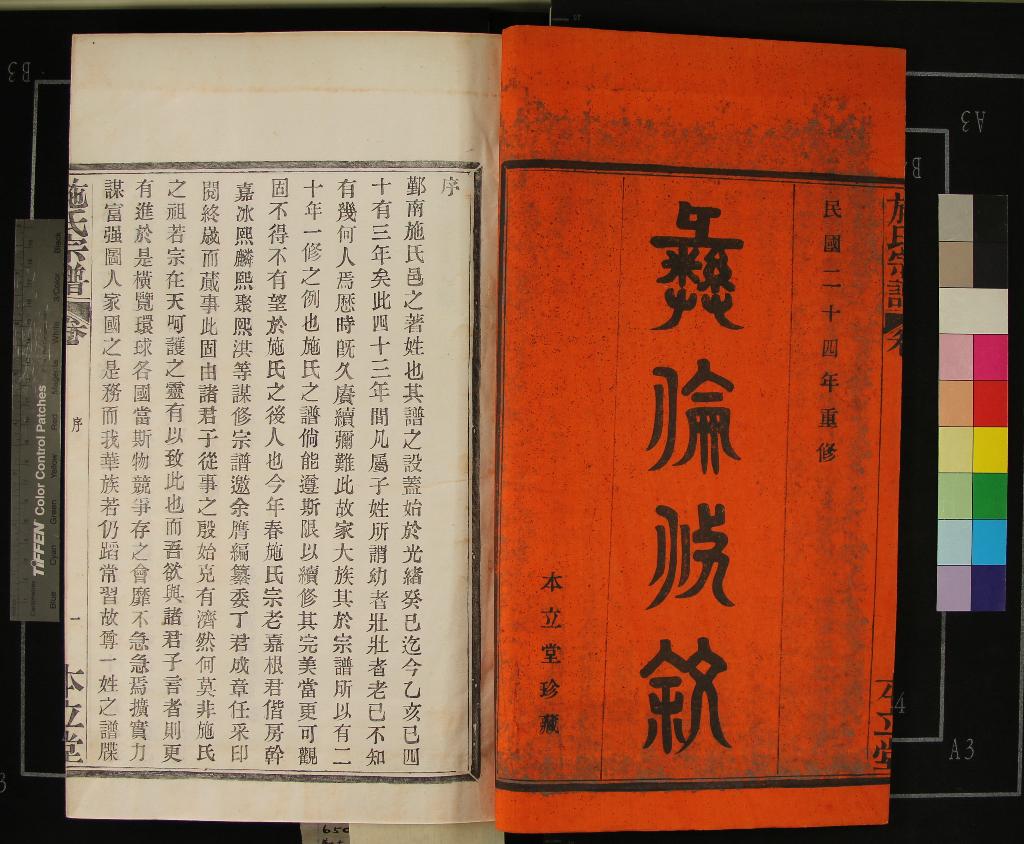 民國二十四年重修
彝倫攸敘
本立堂珍藏
施氏宗譜
序
鄞南施氏邑之著姓也其譜之設蓋始於光緒癸巳迄今乙亥已四
十有三年矣此四十三年間凡屬子姓所謂幼者壯壯者老已不知
有幾何人焉歷時既久賡續彌難此故家大族其於宗譜所以有二
十年一修之例也施氏之譜倘能遵斯限以續修其完美當更可觀
固不得不有望於施氏之後人也今年春施氏宗老嘉根君偕房幹
嘉冰熙麟熙聚熙洪等謀修宗譜邀余膺編纂委丁君成章任采印
閱終歲而蕆事此固由諸君子從事之殷始克有濟然何莫非施氏
之祖若宗在天呵護之靈有以致此也而吾欲與諸君子言者則更
有進於是橫覽環球各國當斯物競爭存之會靡不急急焉擴實力
謀富强圖人家國之是務而我華族若仍蹈常習故尊一姓之譜牒
施氏宗譜
卷
序
一
本立堂
TIFFEN Color Control Patches
A3
A3
B3